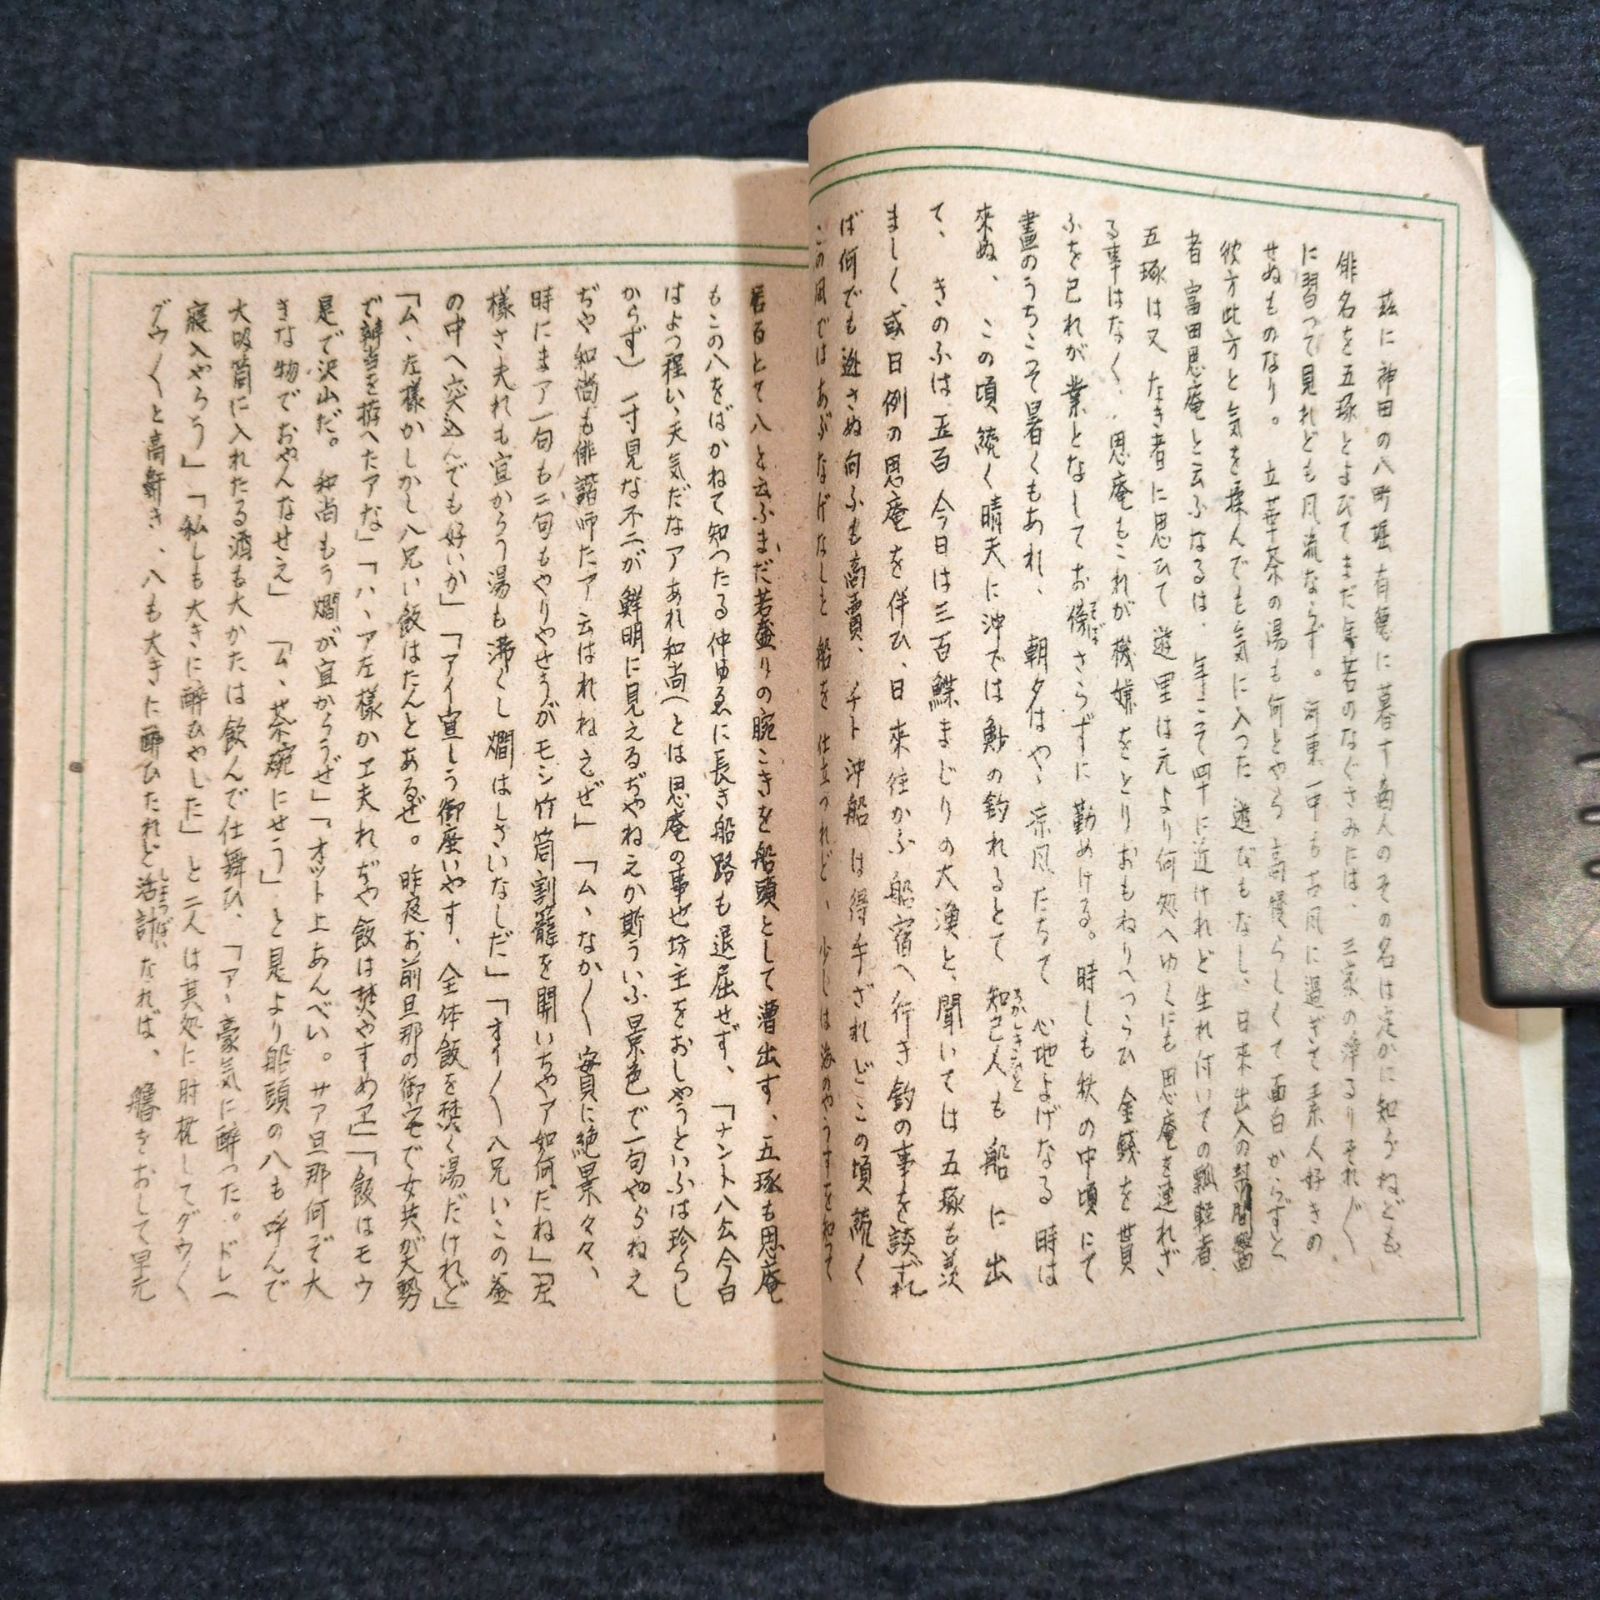 茲に神田の八町堀有裏に暮す商人のその名は定かに知らねども、
俳名を五琢とよびてまだ年若のなぐさみには、三家の浄るりそれ〴〵
に習つて見れども風流ならず。河東一中も古風に過ぎて素人好きの
せぬものなり。立華茶の湯も何とやら高慢らしくて面白からずと
彼方此方と気を揉んでも気に入つた遊びもなし、日来出入の幇間醫
者富田思庵と云ふなるは、年こそ四十に近けれど生れ付いての瓢軽者、
五琢は又なき者に思ひて遊里は元より何処へゆくにも思庵を連れざ
る事はなく、思庵もこれが機嫌をとりおもねりへつらひ金銭を貰
ふを己れが業となしてお傍さらずに勤めける。時しも秋の中頃にて
晝のうちこそ暑くもあれ、朝夕はやゝ涼風たちて心地よげなる時は
来ぬ、この頃続く晴天に沖では鮎の釣れるとて知己人も船に出
て、きのふは五百今日は三百鰈まじりの大漁と、聞いては五琢も羨
ましく、或日例の思庵を伴ひ、日来往かふ船宿へ行き釣の事を談ずれ
ば何でも逃さぬ向ふも商賣、チト沖船は得手ざれどこの頃続く
この凪ではあぶなげなしと船を仕立つれど、少しは海のやうすを知つて
居るとて八と云ふまだ若盛りの腕こきを船頭として漕出す、五琢も思庵
もこの八をばかねて知つたる仲ゆゑに長き船路も退屈せず、「ナント八公今日
はよつ程いゝ天気だなアあれ和尚(とは思庵の事也坊主をおしやうといふは珍らし
からず)一寸見な不二が鮮明に見えるぢやねえか斯ういふ景色で一句やらねえ
ぢや和尚も俳諧師たア云はれねえぜ」「ム、なか〳〵 実に絶景々々、
時にまア一句も二句もやりやせうがモシ竹筒割籠を開いちやア如何だね」「五
様さ夫れも宜からう湯も沸くし燗はしさいなしだ」「オイ〳〵八兄いこの釜
の中へ突込んでも好いか」「アイ宜しう御座いやす、全体飯を焚く湯だけれど」
「ム、左様かしかし八兄い飯はたんとあるぜ。昨夜お前旦那の御宅で女共が大勢
で辨当を拵へたアな」「ハ、ア左様かエ夫れぢや飯は焚やすめエ」「飯はモウ
是で沢山だ。和尚もう燗が宜からうぜ」「オット上あんべい。サア旦那何ぞ大
きな物でおやんなせえ」「ム、茶碗にせう」と是より船頭の八も呼んで
大吸筒に入れたる酒も大かたは飲んで仕舞ひ、「アゝ豪気に酔つた。ドレ
寝入やらう」「私しも大きに酔ひやした」と二人は其処に肘枕してグウ〳〵
グウ〳〵と高鼾き、八も大きに酔ひたれど活計なれば、艪をおして早元